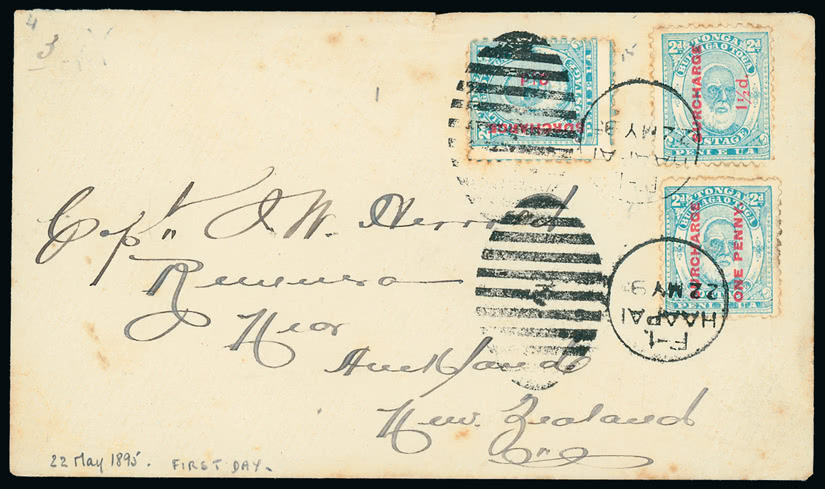 4
3
1
SURCHARGE
2d TONGA 2d
BULEAGA O TOGA
SURCHARGE
1½d.
POSTAGE
PENI E UA
2d TONGA 2d
SURCHARGE
ONE PENNY
PENI E UA
22 MY 9
HAAPAI
22 MY 9
HAAPAI
F-1.
Capt J. W.
Remuera
Near
Auckland
New Zealand
22 May 1895. FIRST DAY.